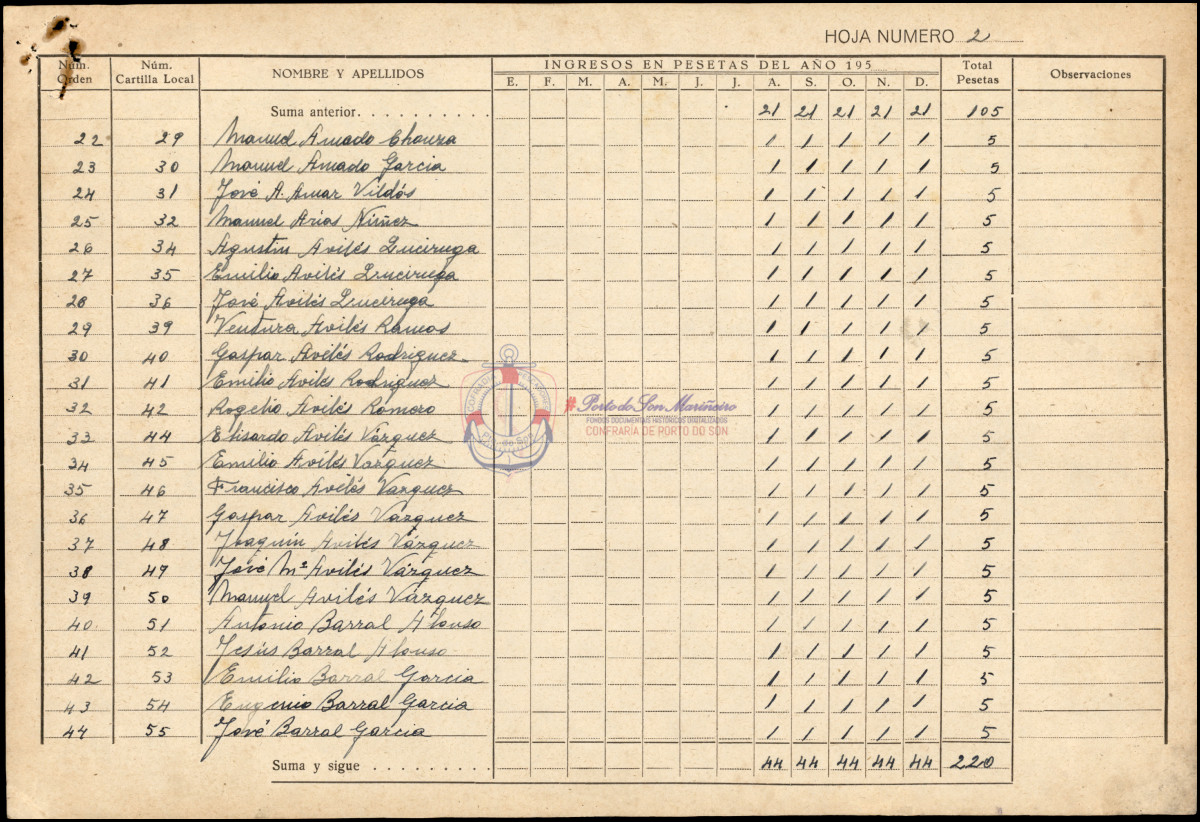 HOJA NUMERO 2
Núm. Orden Núm. Cartilla Local NOMBRE Y APELLIDOS INGRESOS EN PESETAS DEL AÑO 195 Total Pesetas Observaciones
E. F. M. A. M. J. J. A. S. O. N. D.
Suma anterior. . . . . . . . . . 21 21 21 21 21 105
22 29 Manuel Amado Chouza 1 1 1 1 1 5
23 30 Manuel Amado Garcia 1 1 1 1 1 5
24 31 José A. Amar Vildós 1 1 1 1 1 5
25 32 Manuel Arias Núñez 1 1 1 1 1 5
26 34 Agustin Avilés 1 1 1 1 1 5
27 35 Emilio Avilés 1 1 1 1 1 5
28 36 José Avilés 1 1 1 1 1 5
29 39 Ventura Avilés Ramos 1 1 1 1 1 5
30 40 Gaspar Avilés Rodriguez 1 1 1 1 1 5
31 41 Emilio Avilés Rodriguez 1 1 1 1 1 5
32 42 Rogelio Avilés Romero 1 1 1 1 1 5
33 44 Elisardo Avilés Vázquez 1 1 1 1 1 5
34 45 Emilio Avilés Vázquez 1 1 1 1 1 5
35 46 Francisco Avilés Vazquez 1 1 1 1 1 5
36 47 Gaspar Avilés Vázquez 1 1 1 1 1 5
37 48 Joaquín Avilés Vázquez 1 1 1 1 1 5
38 49 José Mª Avilés Vázquez 1 1 1 1 1 5
39 50 Manuel Avilés Vázquez 1 1 1 1 1 5
40 51 Antonio Barral Alonso 1 1 1 1 1 5
41 52 Jesús Barral Alonso 1 1 1 1 1 5
42 53 Emilio Barral Garcia 1 1 1 1 1 5
43 54 Eugenio Barral Garcia 1 1 1 1 1 5
44 55 José Barral Garcia 1 1 1 1 1 5
Suma y sigue . . . . . . . . . 44 44 44 44 44 220
#Porto do Son Mariñeiro
FONDOS DOCUMENTAIS HISTÓRICOS DIGITALIZADOS
CONFRARÍA DE PORTO DO SON